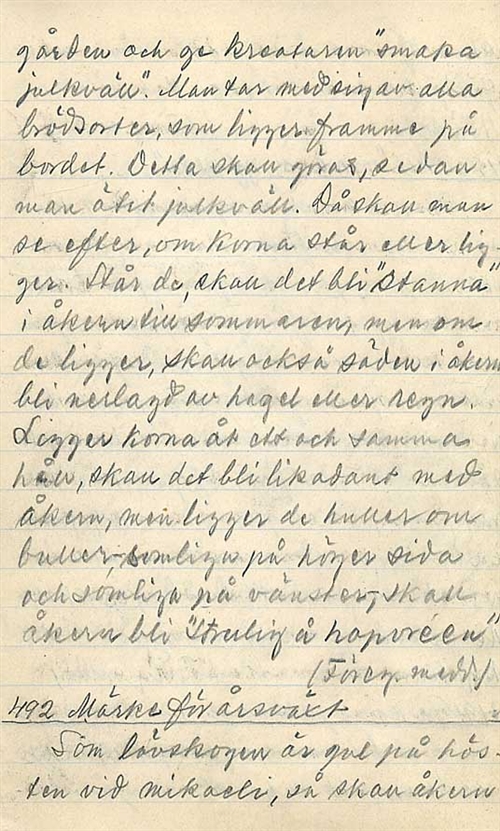 gården och ge kreaturen "smaka
julkväll". Man tar med sig av alla
brödsorter, som ligger framme på
bordet. Detta skall göras, sedan
man ätit julkväll. Då skall man
se efter, om korna står eller lig-
ger. Står de, skall det bli "stanna"
i åkern till sommaren, men om
de ligger, skall också säden i åkern
bli nerlagd av hagel eller regn.
Ligger korna åt ett och samma
håll, skall det bli likadant med
åkern, men ligger de huller om
buller, somliga på höger sida
och somliga på vänster, skall
åkern bli "strulig å hoporéen"
(Föreg. medd.)
492 Märke för årsväxt
Som lövskogen är gul på hös-
ten vid mikaeli, så skall åkern